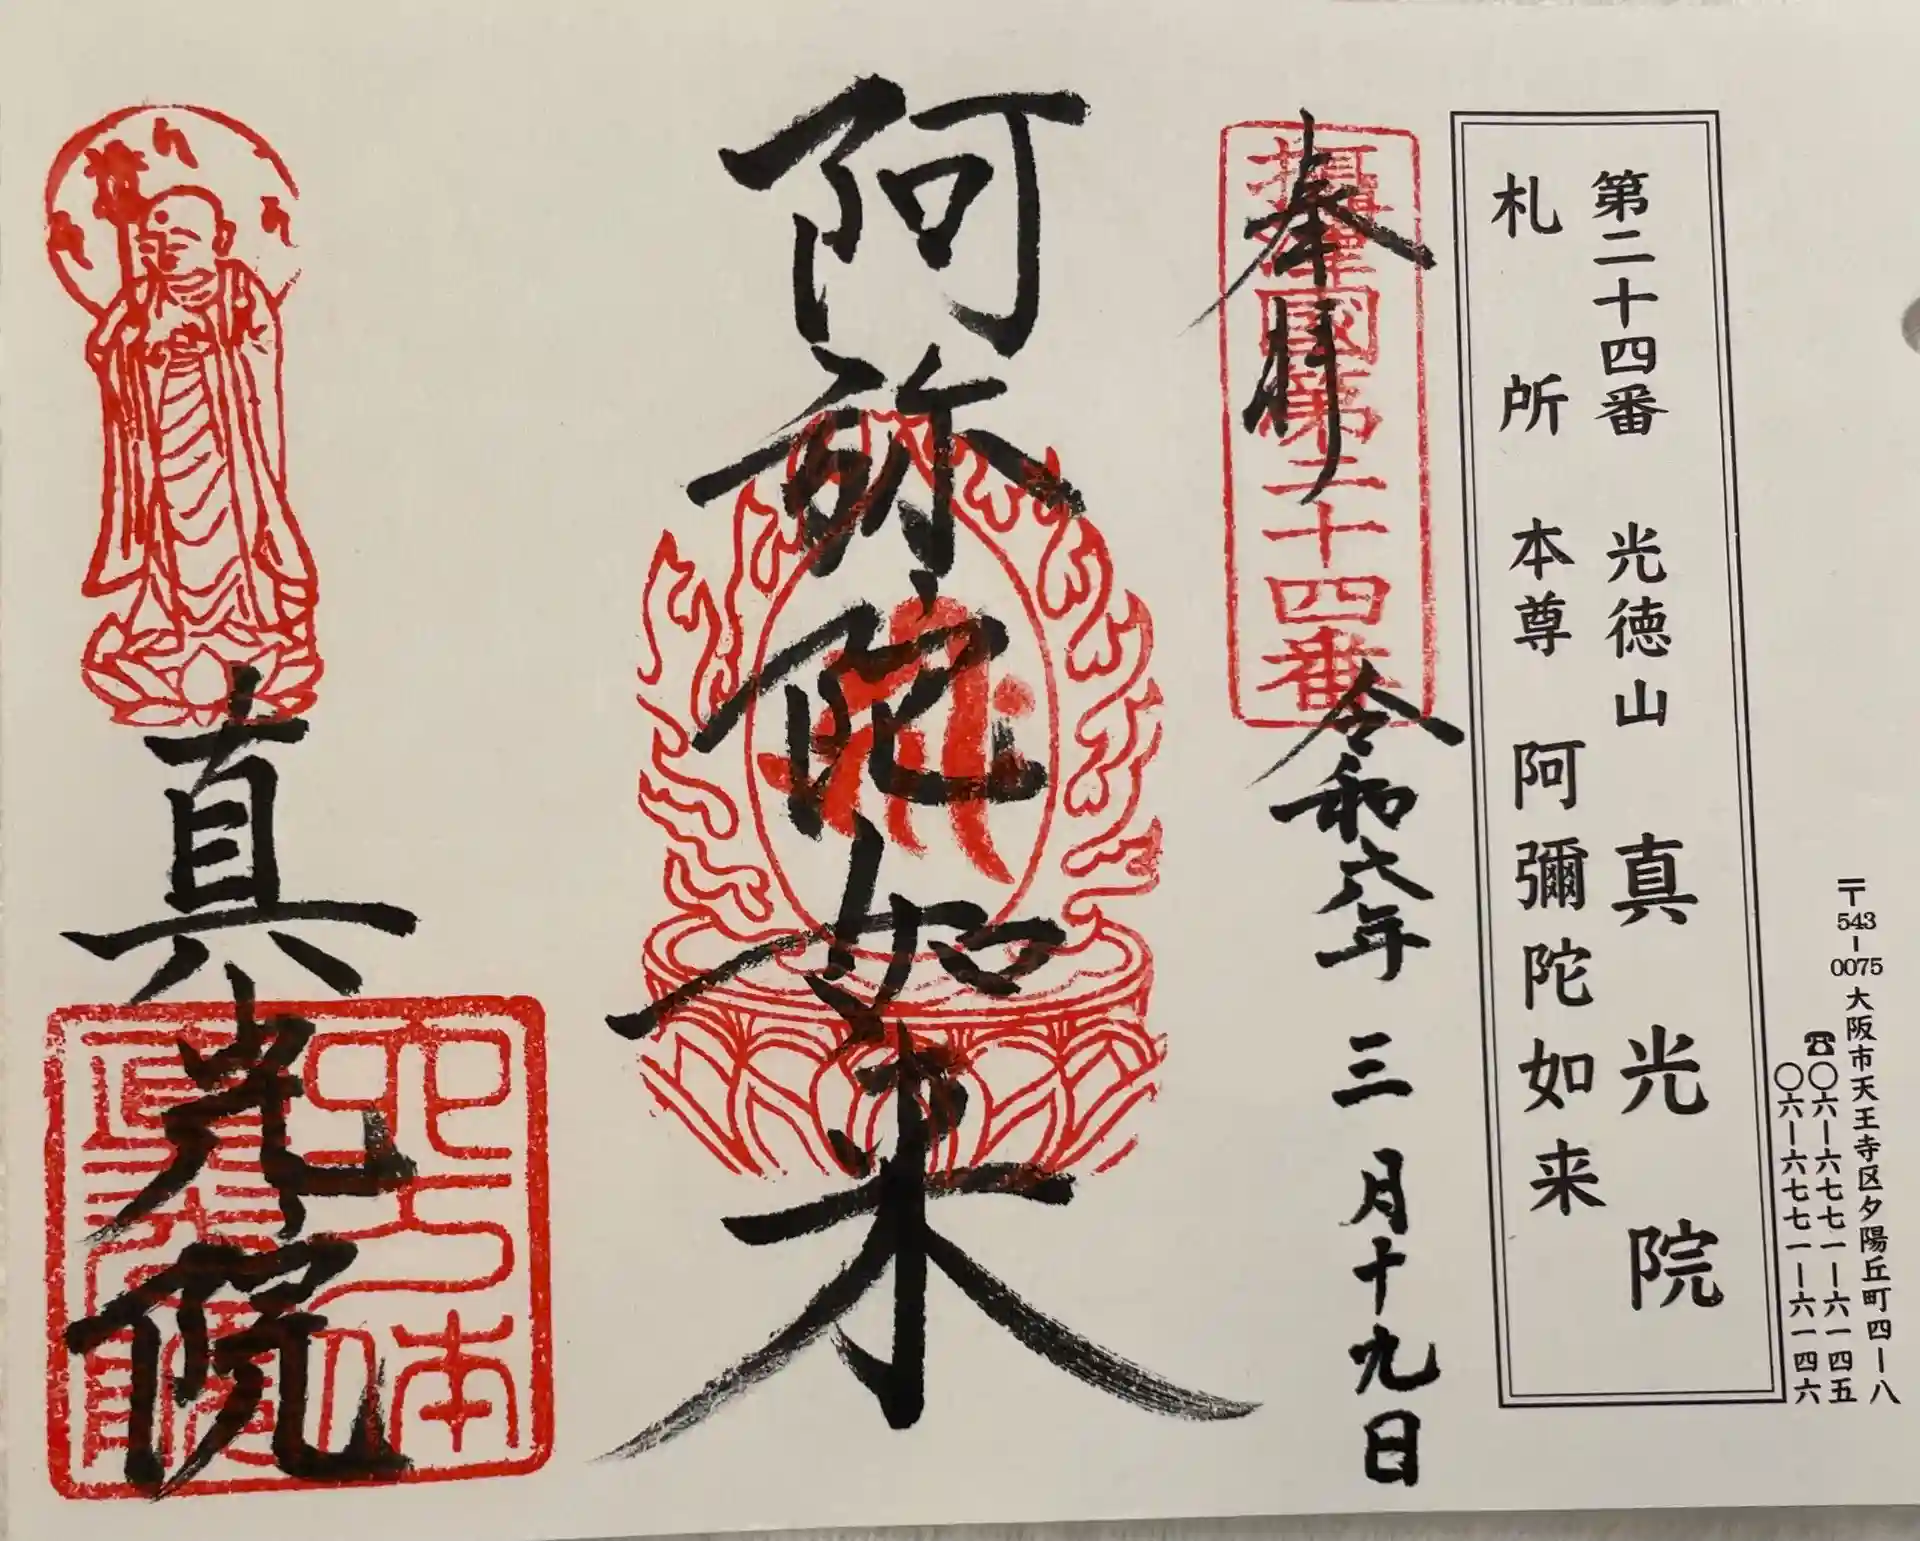 〒543-0075 大阪市天王寺区夕陽丘町四ー八
☎〇六ー六七七一ー六一四五
〇六ー六七七一ー六一四六
第二十四番 光徳山 真光院
札所本尊 阿彌陀如来
奉拝
摂津國第二十四番
令和六年三月十九日
阿弥陀如来
真光院